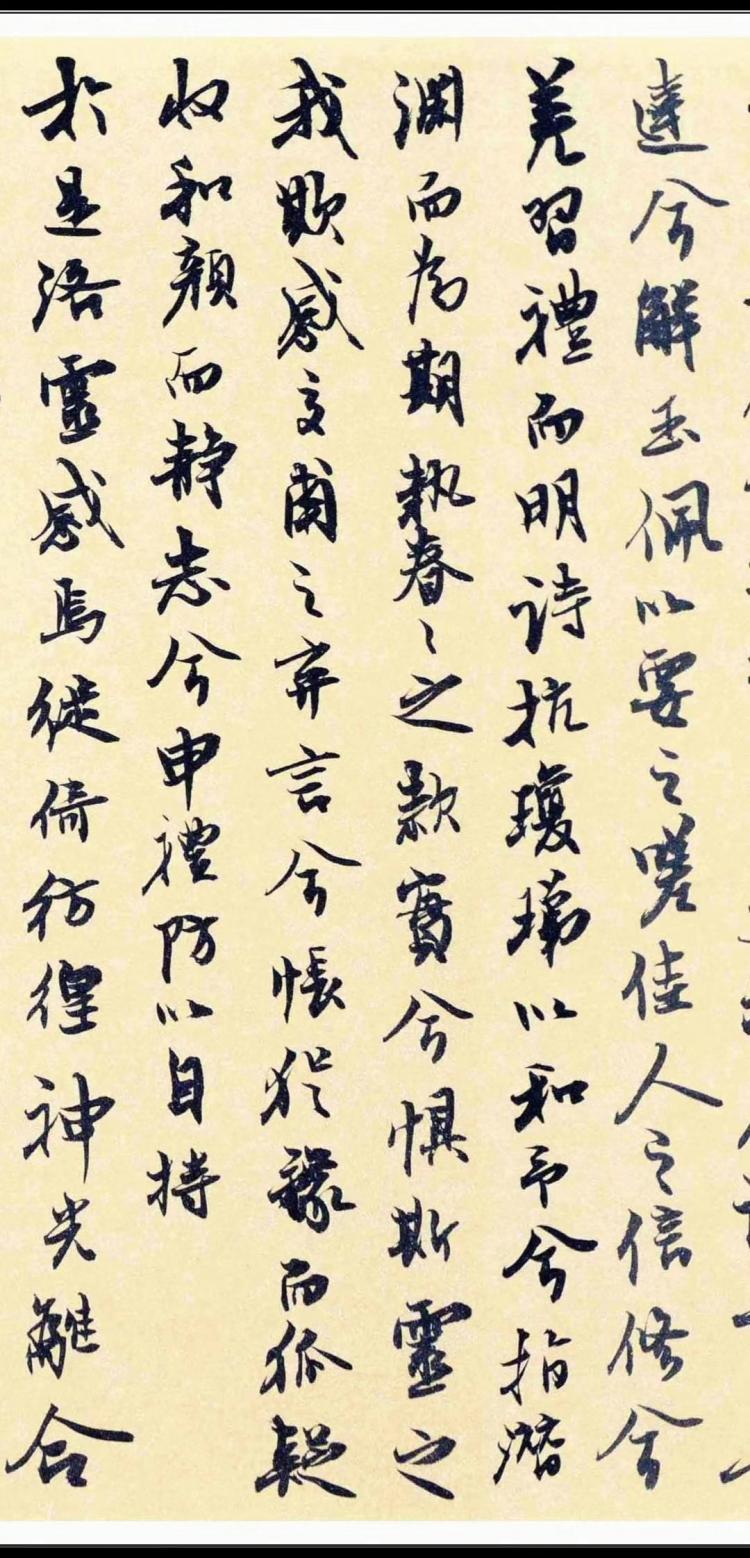 達兮解玉佩以要之嗟佳人之信修兮
羌習禮而明詩抗瓊珶以和予兮指潛
淵而為期執眷〻之款實兮懼斯靈之
我欺感交甫之弃言兮悵猶豫而狐疑
收和顏而静志兮申禮防以自持
於是洛靈感焉徙倚彷徨神光離合